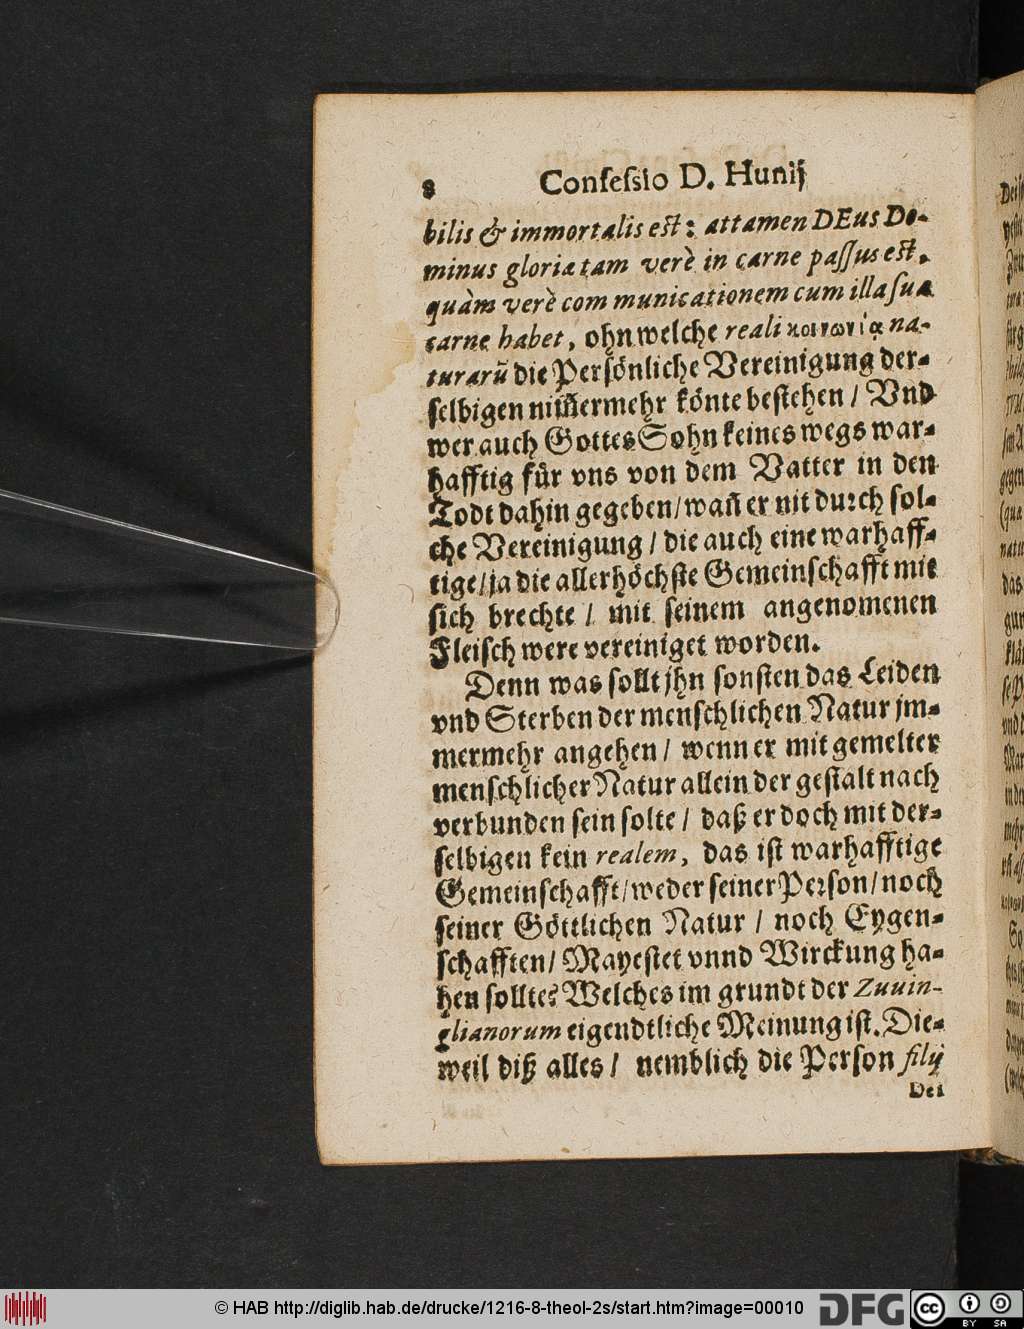 8 Confeſsio D. Hunij
bilis & immortalis eſt: attamen DEus Do-
minus gloriæ tam verè in carne paſſus eſt,
quàm verè communicationem cum illa ſua
carne habet, ohn welche reali κοινωνίᾳ na-
turarū die Perſönliche Vereinigung der-
ſelbigen nim̃ermehr könte beſtehen / Vnd
wer auch Gottes Sohn keines wegs war-
hafftig für vns von dem Vatter in den
Todt dahin gegeben / wañ er nit durch ſol-
che Vereinigung / die auch eine warhaff-
tige / ja die allerhöchſte Gemeinſchafft mit
ſich brechte / mit ſeinem angenomenen
Fleiſch were vereiniget worden.
Denn was ſollt jhn ſonſten das Leiden
vnd Sterben der menſchlichen Natur jm-
mermehr angehen / wenn er mit gemelter
menſchlicher Natur allein der geſtalt nach
verbunden ſein ſolte / daß er doch mit der-
ſelbigen kein realem, das iſt warhafftige
Gemeinſchafft / weder ſeiner Perſon / noch
ſeiner Göttlichen Natur / noch Eygen-
ſchafften / Mayeſtet vnnd Wirckung ha-
ben ſollte? Welches im grundt der Zuuin-
glianorum eigendtliche Meinung iſt. Die-
weil diß alles / nemblich die Perſon filij
Dei
© HAB http://diglib.hab.de/drucke/1216-8-theol-2s/start.htm?image=00010 DFG cc BY SA